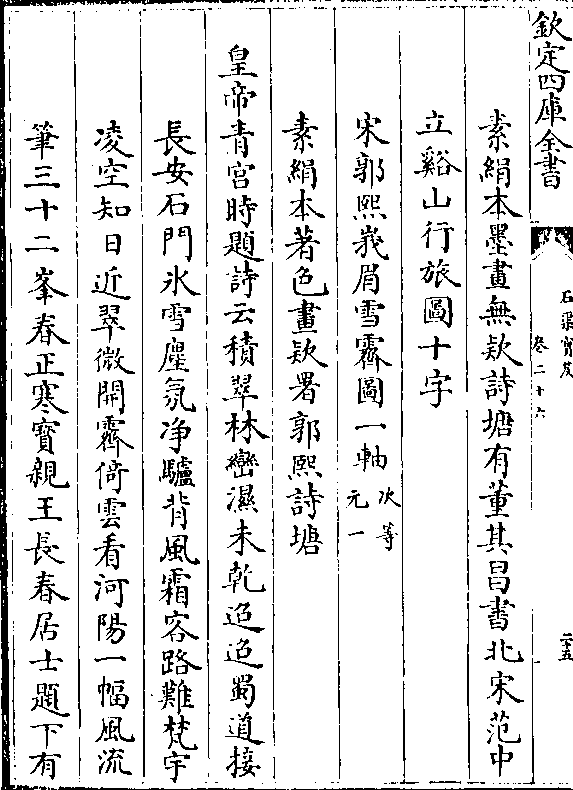 欽定四庫全書
石渠寶笈
卷二十六
二十五
素絹本墨畫無款詩塘有董其昌書北宋范中
立谿山行旅圖十字
宋郭熙峩眉雪霽圖一軸 次等
元一
素絹本著色畫款署郭熙詩塘
皇帝青宮時題詩云積翠林巒濕未乾迢迢蜀道接
長安石門氷雪塵氛净驢背風霜客路難梵宇
凌空知日近翠微開霽倚雲看河陽一幅風流
筆三十二峯春正寒寳親王長春居士題下有